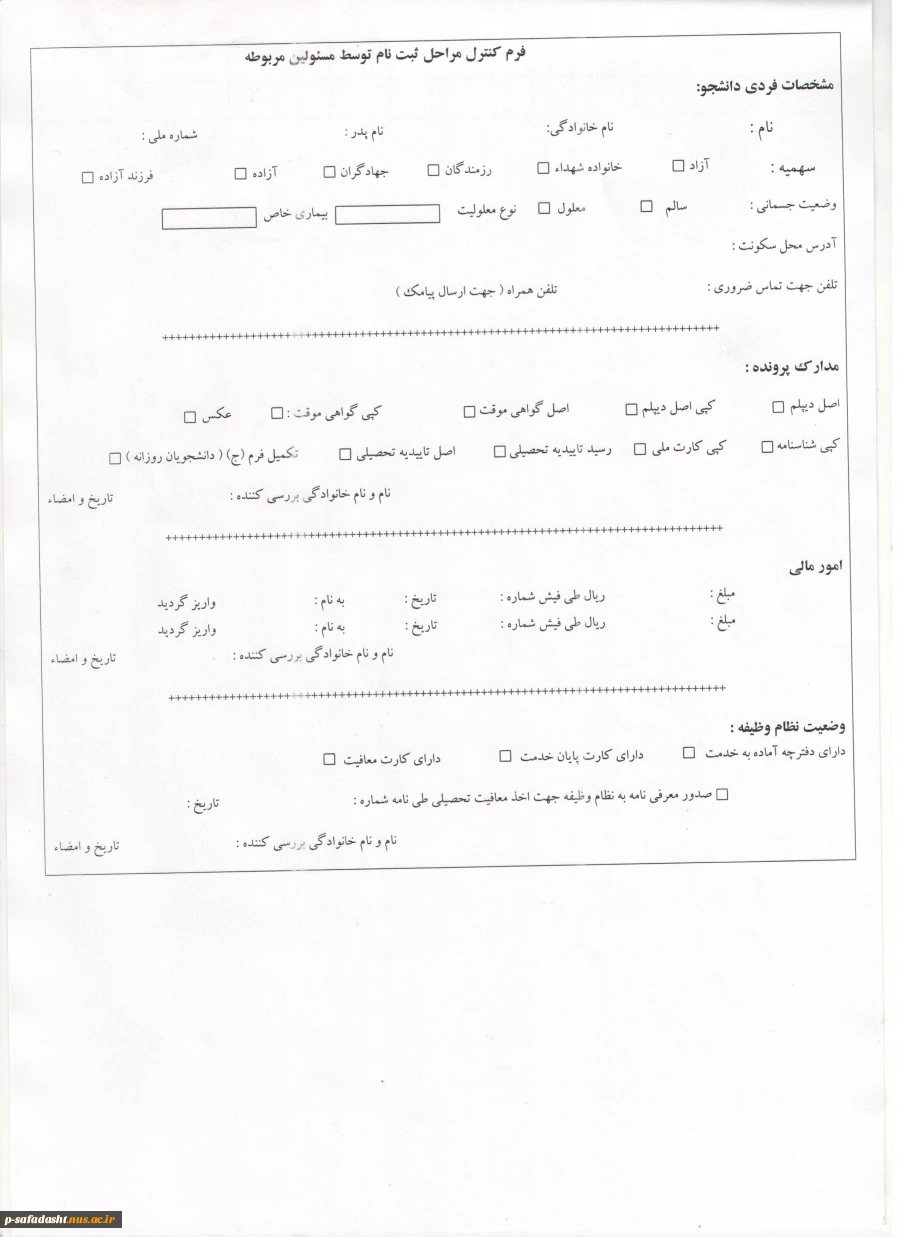 فرم کنترل مراحل ثبت نام توسط مسئولین مربوطه
مشخصات فردی دانشجو:
نام : نام خانوادگی: نام پدر : شماره ملی :
سهمیه : آزاد □ خانواده شهداء □ رزمندگان □ جهادگران □ آزاده □ فرزند آزاده □
وضعیت جسمانی : سالم □ معلول □ نوع معلولیت بیماری خاص
آدرس محل سکونت :
تلفن جهت تماس ضروری : تلفن همراه ( جهت ارسال پیامک )
++++++++++++++++++++++++++++++++++++++++++++++++++++++++++++++++++++++++++++++++
مدارک پرونده :
اصل دیپلم □ کپی اصل دیپلم □ اصل گواهی موقت □ کپی گواهی موقت : □ عکس □
کپی شناسنامه □ کپی کارت ملی □ رسید تاییدیه تحصیلی □ اصل تاییدیه تحصیلی □ تکمیل فرم (ج) ( دانشجویان روزانه ) □
نام و نام خانوادگی بررسی کننده : تاریخ و امضاء
++++++++++++++++++++++++++++++++++++++++++++++++++++++++++++++++++++++++++++++++
امور مالی
مبلغ : ریال طی فیش شماره : تاریخ : به نام : واریز گردید
مبلغ : ریال طی فیش شماره : تاریخ : به نام : واریز گردید
نام و نام خانوادگی بررسی کننده : تاریخ و امضاء
++++++++++++++++++++++++++++++++++++++++++++++++++++++++++++++++++++++++++++++++
وضعیت نظام وظیفه :
دارای دفترچه آماده به خدمت □ دارای کارت پایان خدمت □ دارای کارت معافیت □
□ صدور معرفی نامه به نظام وظیفه جهت اخذ معافیت تحصیلی طی نامه شماره : تاریخ :
نام و نام خانوادگی بررسی کننده : تاریخ و امضاء
p-safadasht.nus.ac.ir